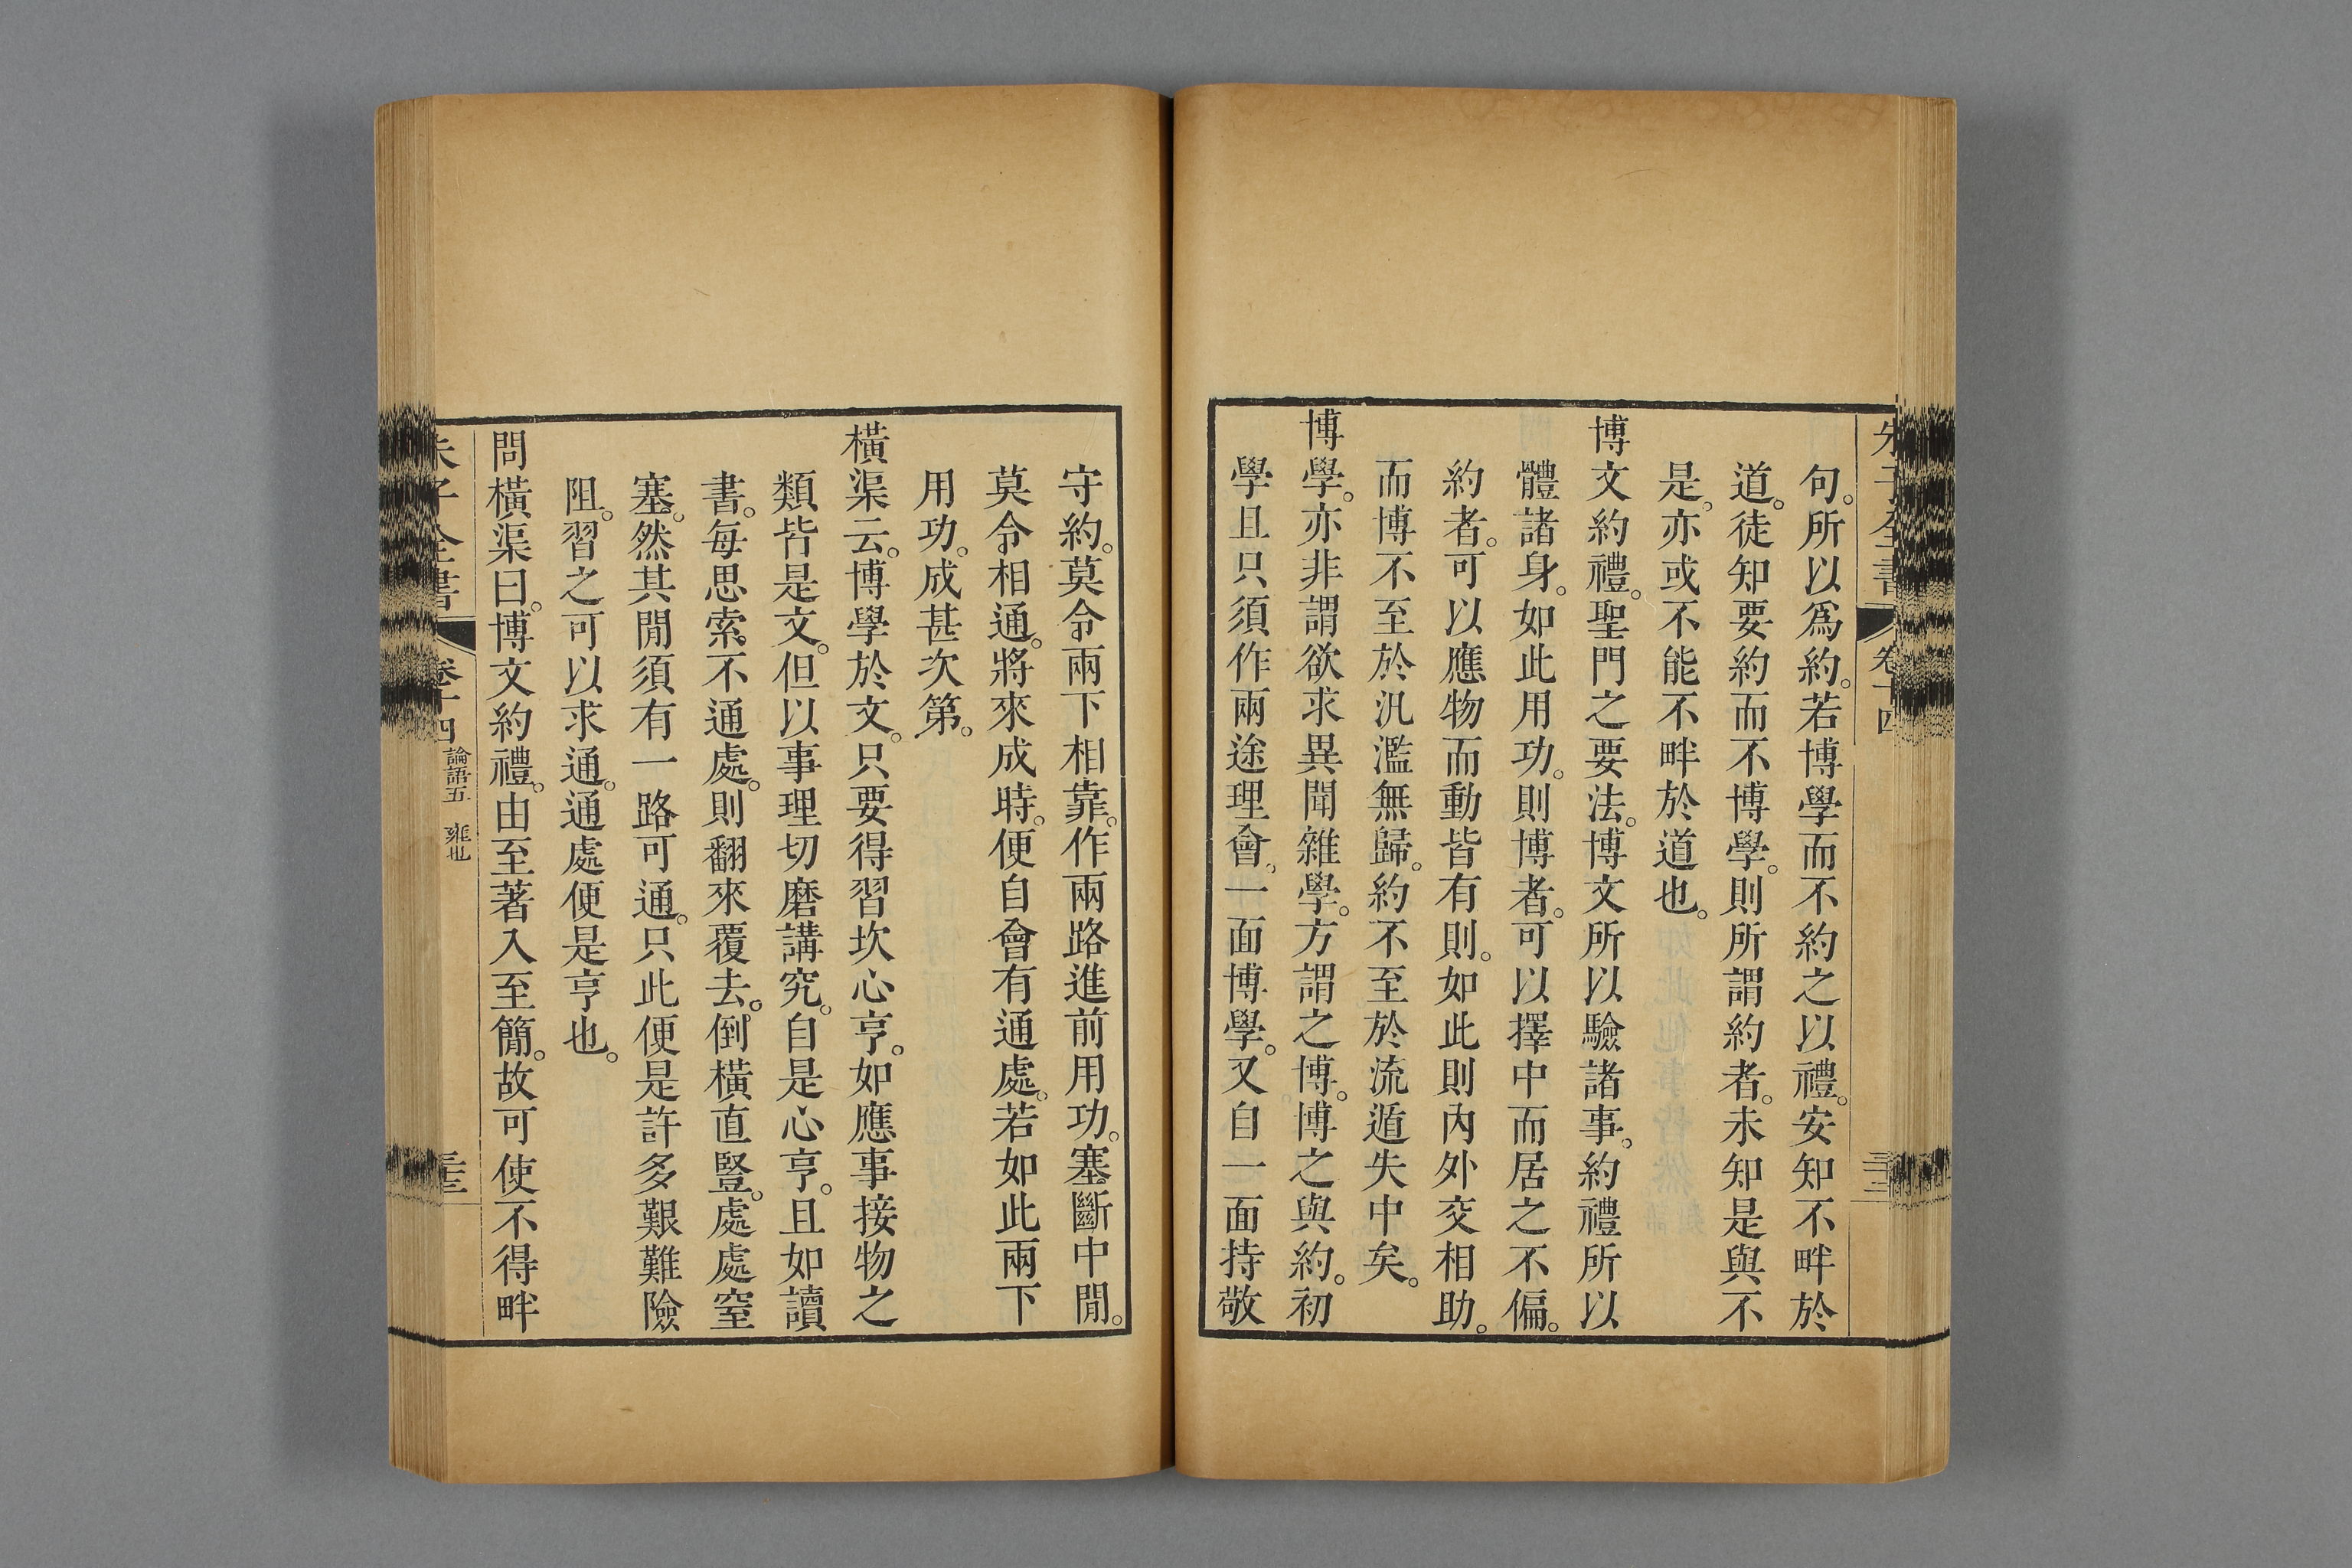 句。所以爲約。若博學而不約之以禮。安知不畔於
道。徒知要約而不博學。則所謂約者。未知是與不
是。亦或不能不畔於道也。
博文約禮。聖門之要法。博文所以驗諸事。約禮所以
體諸身。如此用功。則博者。可以擇中而居之不偏。
約者。可以應物而動皆有則。如此則內外交相助。
而博不至於汎濫無歸。約不至於流遁失中矣。
博學。亦非謂欲求異聞雜學。方謂之博。博之與約。初
學且只須作兩途理會。一面博學。又自一面持敬
守約。莫令兩下相靠。作兩路進前用功。塞斷中閒。
莫令相通。將來成時。便自會有通處。若如此兩下
用功。成甚次第。
橫渠云。博學於文。只要得習坎心亨。如應事接物之
類皆是文。但以事理切磨講究。自是心亨。且如讀
書。每思索不通處。則翻來覆去。倒橫直豎。處處窒
塞。然其閒須有一路可通。只此便是許多艱難險
阻。習之可以求通。通處便是亨也。
問橫渠曰。博文約禮。由至著入至簡。故可使不得畔
朱子全書 卷十四 論語五 雍也